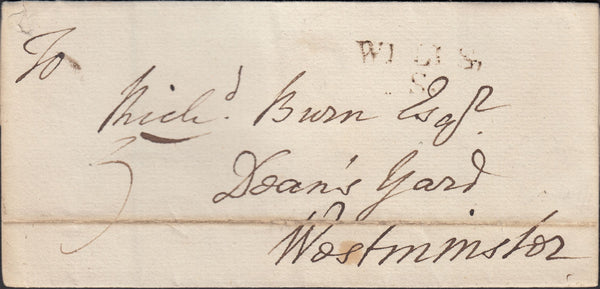 To
WELLS,
S.
Rich.d Burn Esqr.
Dean's Yard
Westminster